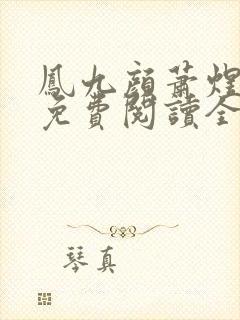 鳳九顔蕭煌
免費閱讀全
琴真